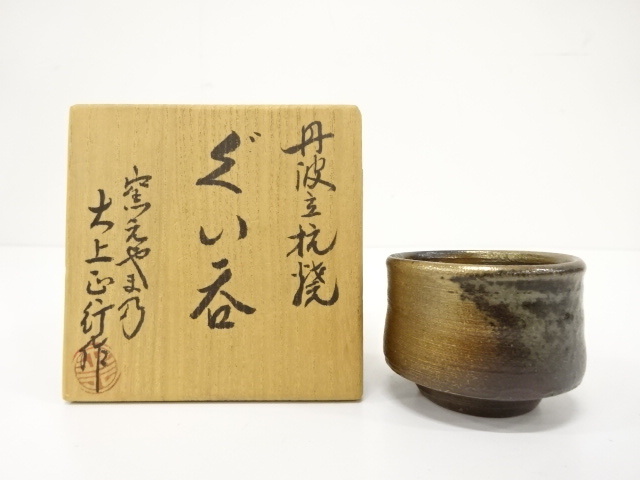 丹波立杭焼
ぐい呑
窯元やまの
大上正行作